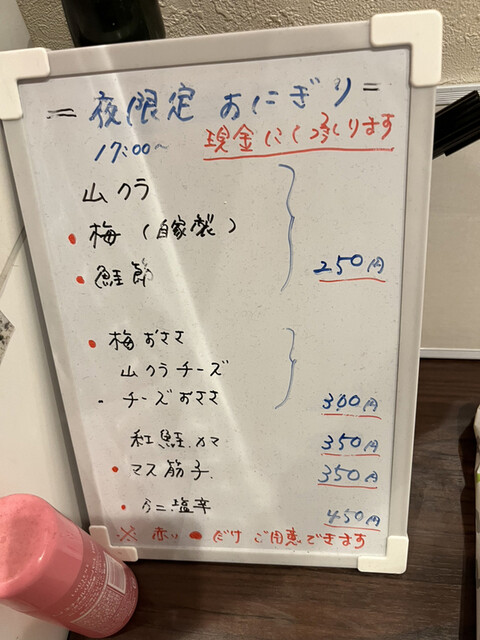 = 夜限定 おにぎり =
17:00〜 現金にて承ります
山クラ
• 梅 (自家製)
• 鮭節 250円
• 梅おささ
山クラチーズ
• チーズおささ 300円
紅鮭カマ 350円
• マス筋子 350円
• カニ塩辛 450円
※ 赤い ● だけ ご用意できます